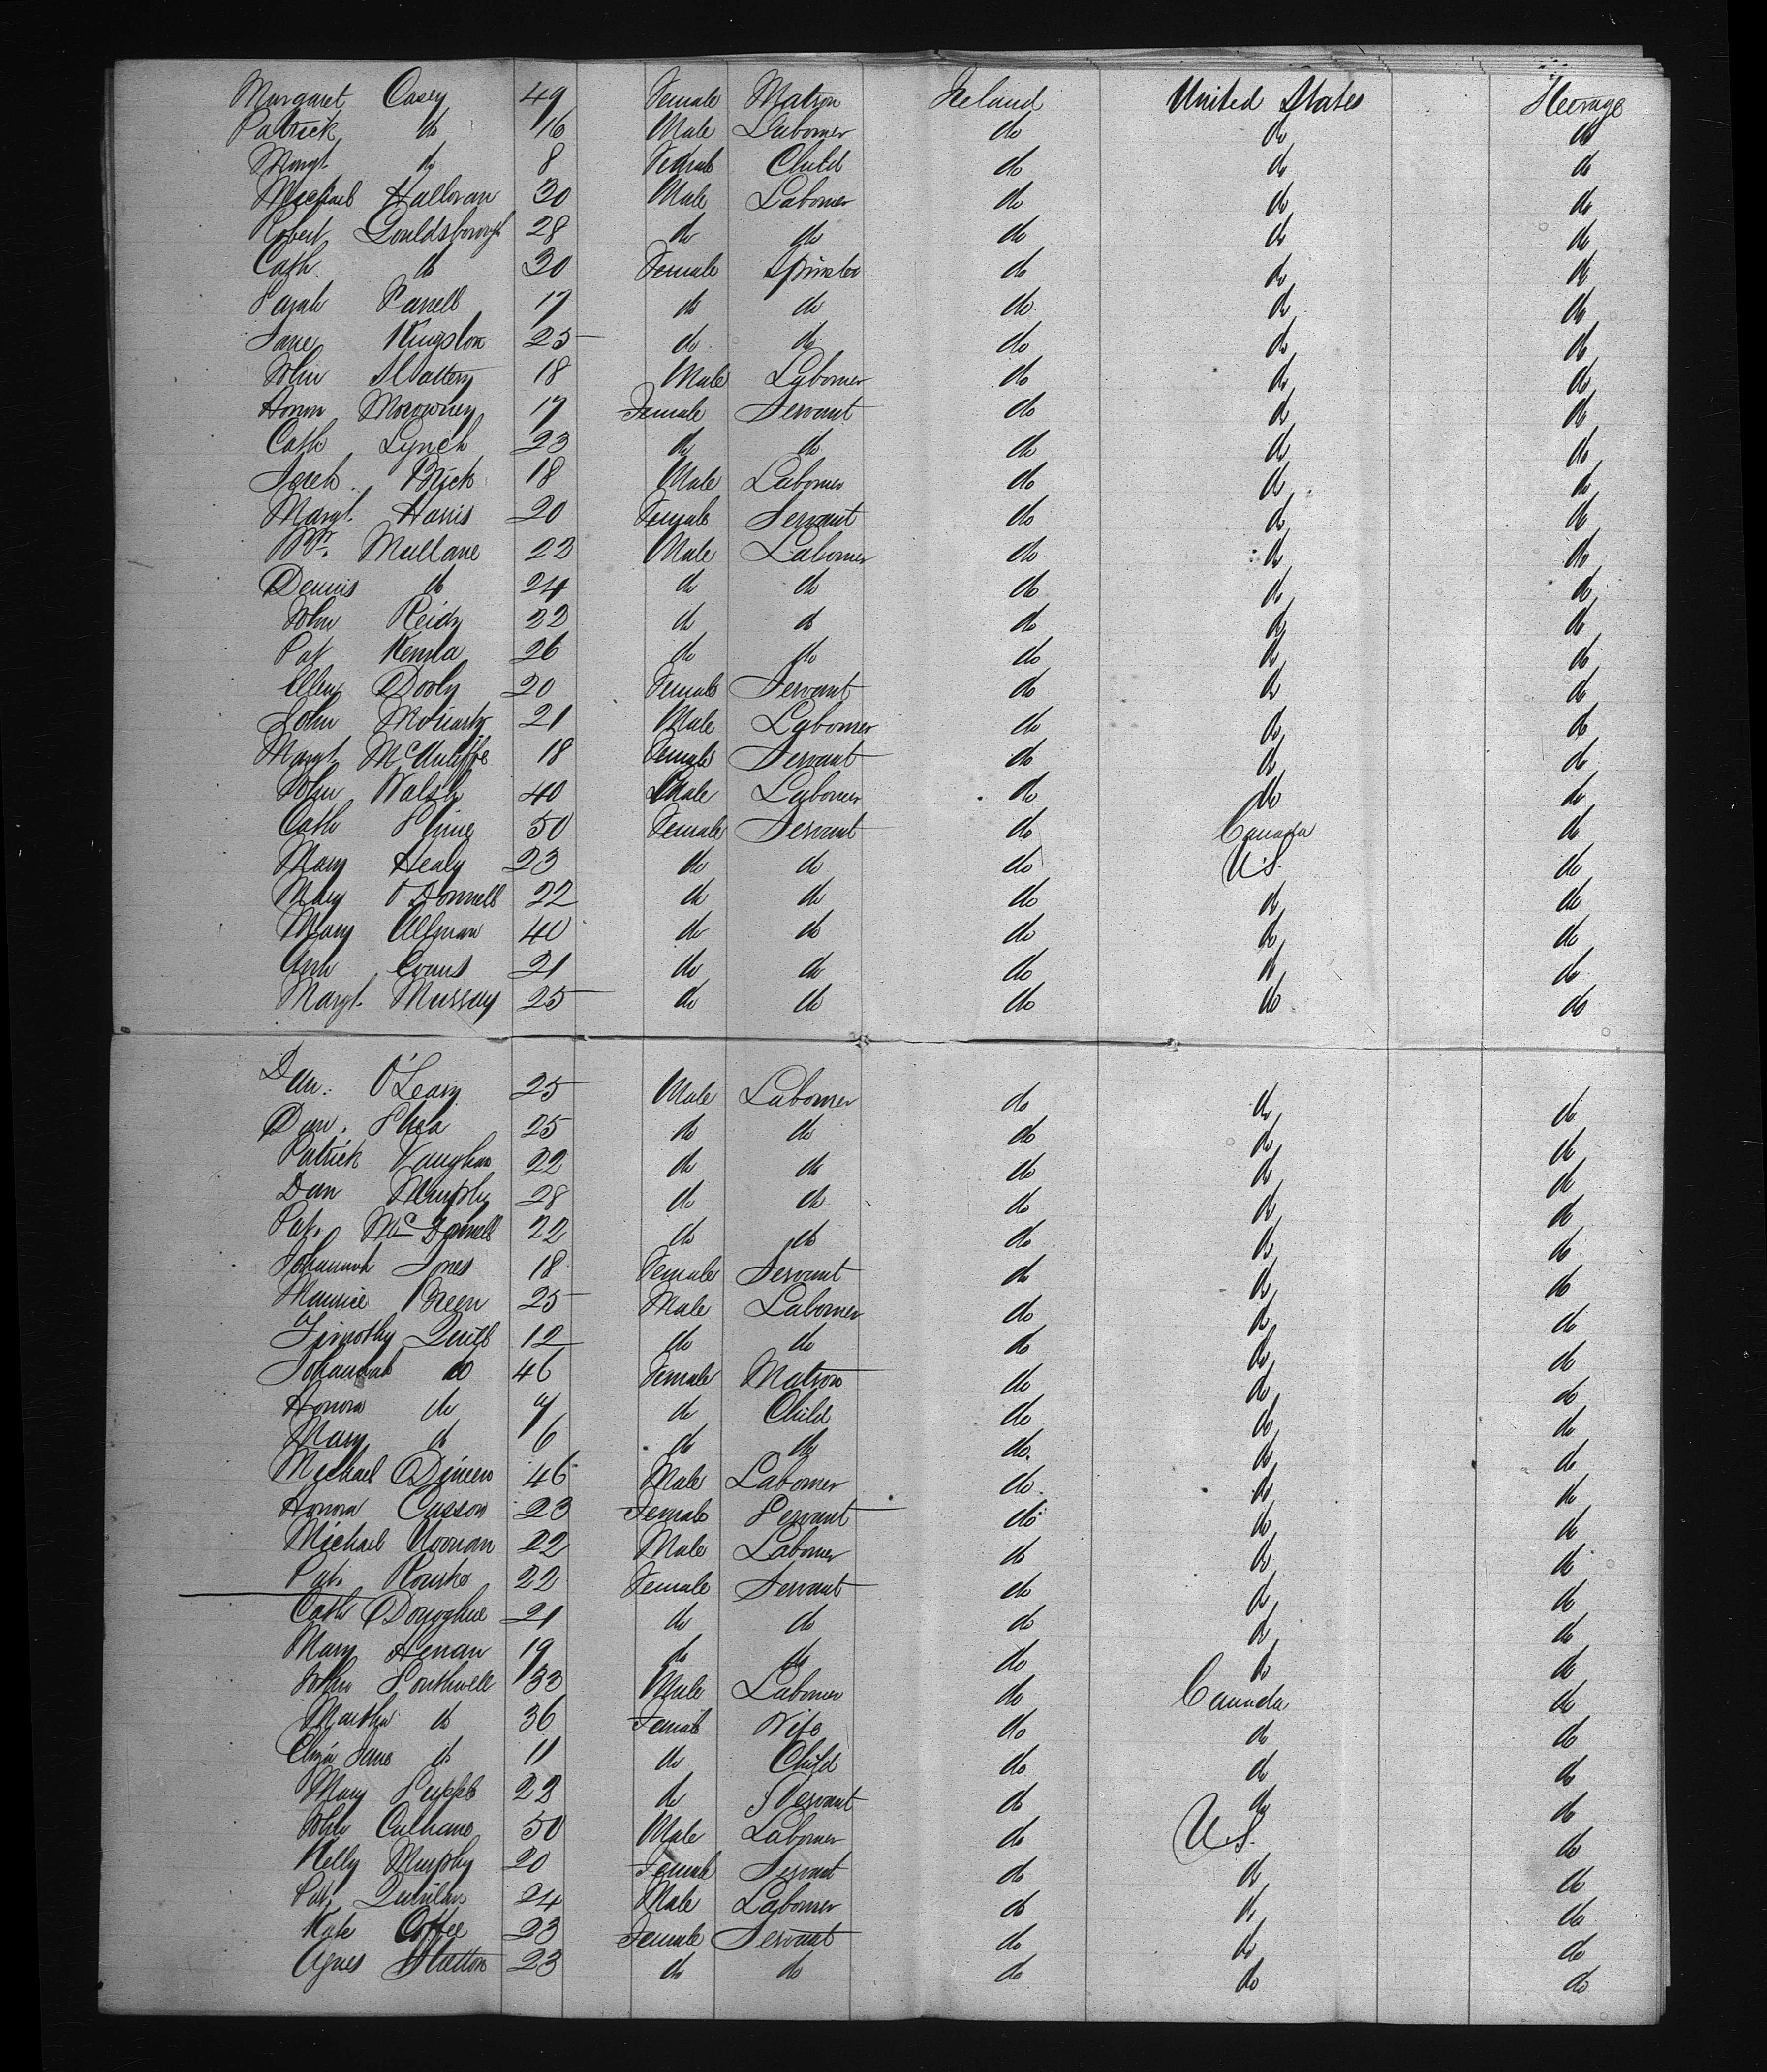 Margaret Casey 49 Female Matron Ireland United States Steerage
Patrick do 16 Male Labourer do do do
Margt. do 8 Female Child do do do
Michael Halloran 30 Male Labourer do do do
Robert Gouldsborough 28 do do do do do
Cath. do 30 Female Spinster do do do
Sarah 17 do do do do do
Jane Kingston 25 do do do do do
John Slattery 18 Male Labourer do do do
Honor 17 Female Servant do do do
Cath Lynch 23 do do do do do
Jereh. Brick 18 Male Labourer do do do
Margt. Harris 20 Female Servant do do do
Wm. Mullane 22 Male Labourer do do do
Dennis do 24 do do do do do
John Reidy 22 do do do do do
Pat 26 do do do do do
Ellen Dooly 20 Female Servant do do do
John Moriarty 21 Male Labourer do do do
Margt. McAuliffe 18 Female Servant do do do
John Walsh 40 Male Labourer do do do
Cath Shine 50 Female Servant do Canada do
Mary Healy 23 do do do U.S. do
Mary O'Donnell 22 do do do do do
Mary Allman 40 do do do do do
Ann Evans 21 do do do do do
Margt. Murray 25 do do do do do
Dan. O'Leary 25 Male Labourer do do do
Dan. Shea 25 do do do do do
Patrick Vaughan 22 do do do do do
Dan Murphy 28 do do do do do
Pat. McDonnell 22 do do do do do
Johannah Jones 18 Female Servant do do do
Maurice Breen 25 Male Labourer do do do
Timothy Quill 12 do do do do do
Johannah do 46 Female Matron do do do
Honora do 7 do Child do do do
Mary do 6 do do do do do
Michael Dineen 46 Male Labourer do do do
Honora Casson 23 Female Servant do do do
Michael Noonan 22 Male Labourer do do do
Pat. Rourke 22 Female Servant do do do
Cath O'Donoghue 21 do do do do do
Mary Henan 19 do do do do do
John Southwell 33 Male Labourer do Canada do
Martha do 36 Female Wife do do do
Eliza Jane do 11 do Child do do do
Mary Supple 22 do Servant do do do
John Culhane 50 Male Labourer do U.S. do
Nelly Murphy 20 Female Servant do do do
Pat. Quinlan 24 Male Labourer do do do
Kate Coffee 23 Female Servant do do do
Agnes 23 do do do do do